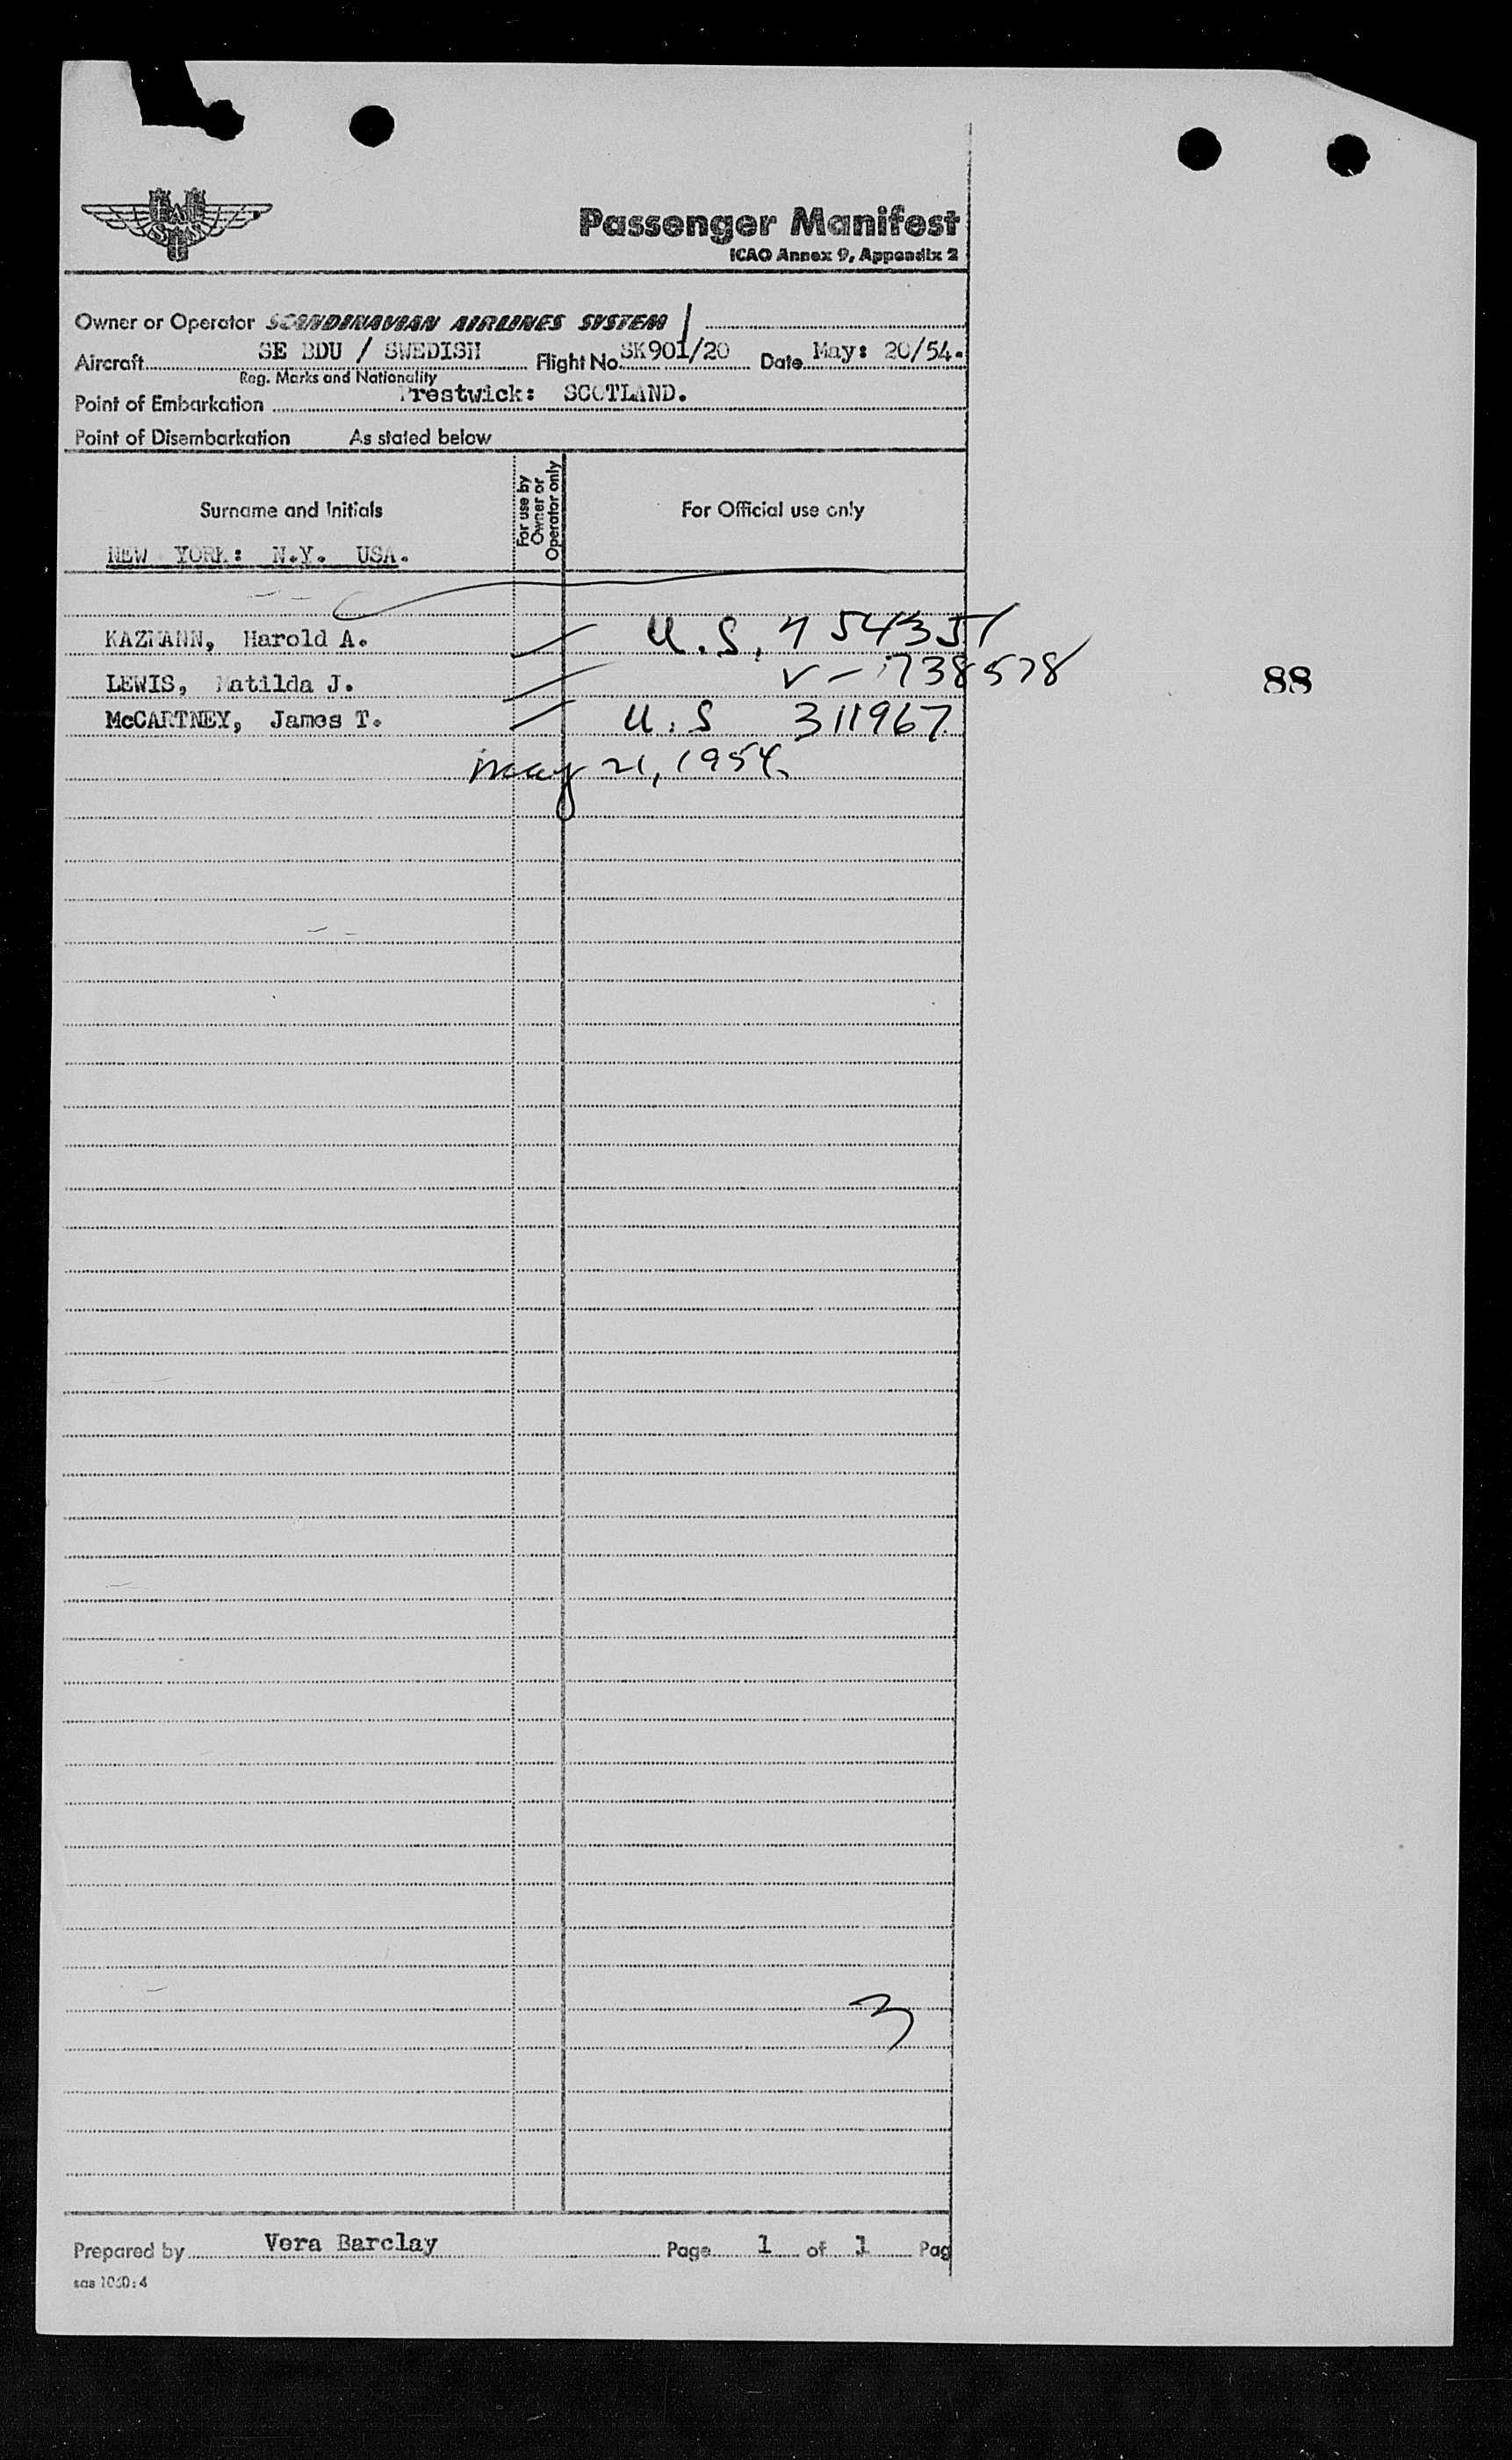 SAS
Passenger Manifest
ICAO Annex 9, Appendix 2
Owner or Operator SCANDINAVIAN AIRLINES SYSTEM
Aircraft SE BDU / SWEDISH Flight No. SK901/20 Date May: 20/54.
Reg. Marks and Nationality
Point of Embarkation Prestwick: SCOTLAND.
Point of Disembarkation As stated below
Surname and Initials For use by Owner or Operator only For Official use only
NEW YORK: N.Y. USA.
KAZMANN, Harold A. U.S. 454351
LEWIS, Matilda J. V-1738578 88
McCARTNEY, James T. U.S 311967
May 21, 1954.
3
Prepared by Vera Barclay Page 1 of 1 Pag
sas 1060:4